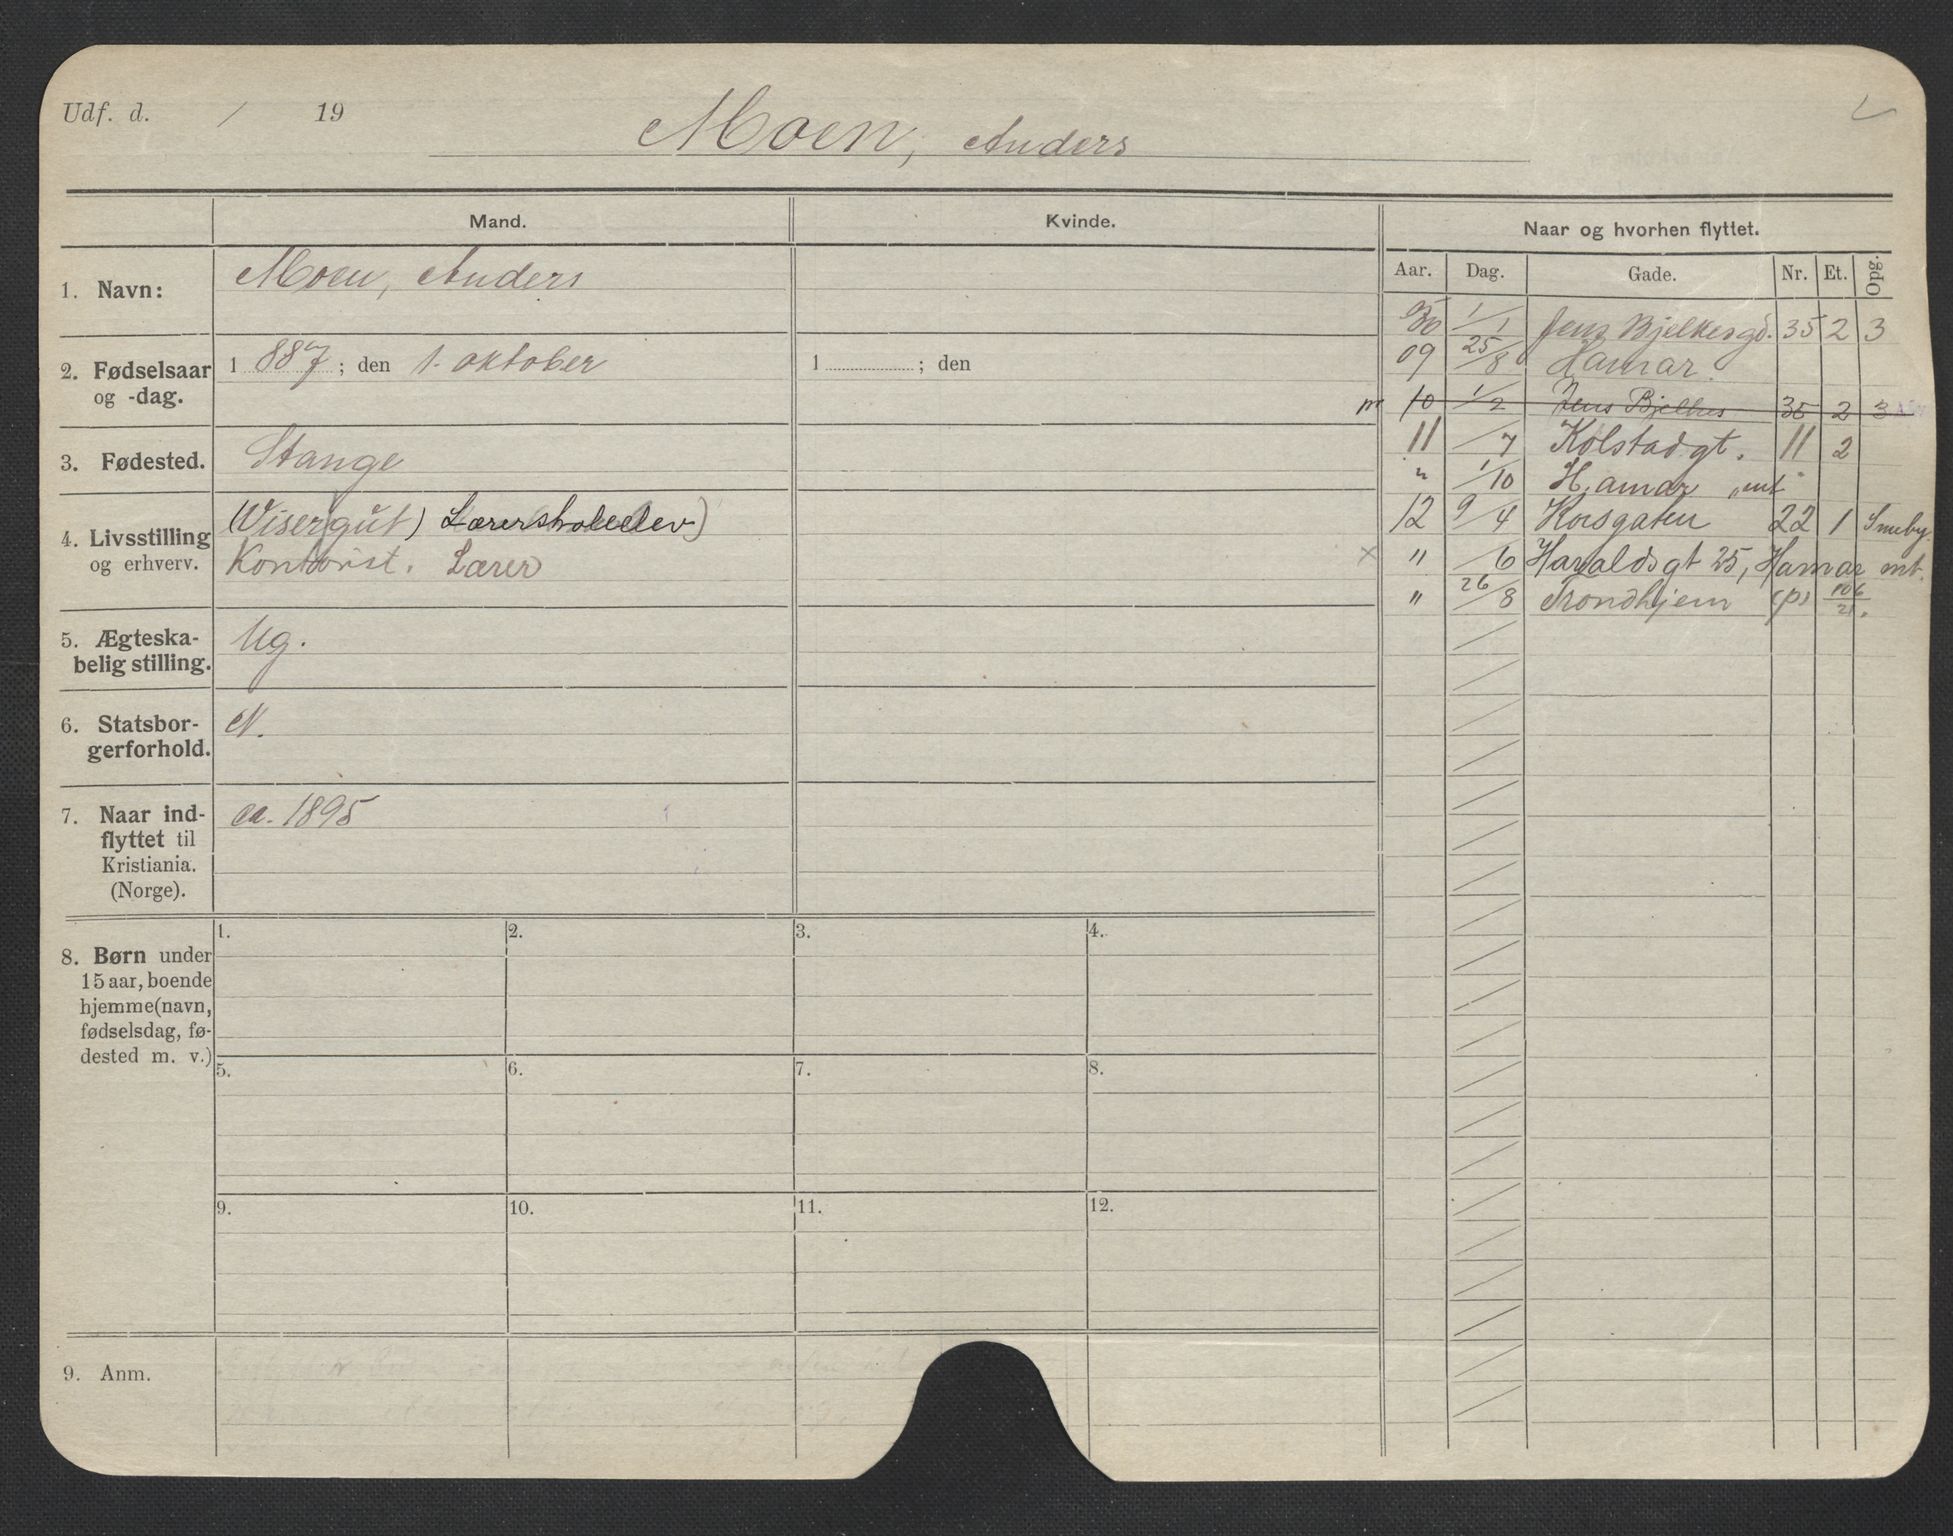 Udf. d. / 19
Moen, Anders
Mand.
Kvinde.
Naar og hvorhen flyttet.
Aar. Dag. Gade. Nr. Et. Opg.
1. Navn:
Moen, Anders
2. Fødselsaar
og -dag.
1887; den 1. oktober
1 ; den
3. Fødested.
Stange
4. Livsstilling
og erhverv.
(Visergut) Lærerskoleelev)
Kontorist. Lærer
5. Ægteska-
belig stilling.
Ug.
6. Statsbor-
gerforhold.
N.
7. Naar ind-
flyttet til
Kristiania.
(Norge).
ca. 1895
8. Børn under
15 aar, boende
hjemme (navn,
fødselsdag, fø-
dested m. v.)
1. 2. 3. 4.
5. 6. 7. 8.
9. 10. 11. 12.
9. Anm.
1/1 Jens Bjelkesgd. 35 2 3
09 25/8 Hamar.
10 1/2 Jens Bjelkes 35 2 3
11 /7 Kolstadgt. 11 2
" 1/10 Hamar "mt"
12 9/4 Korsgaten 22 1 Smeby
" /6 Haraldsgt 25, Hamar mt.
" 26/8 Trondhjem (p) 106/21.